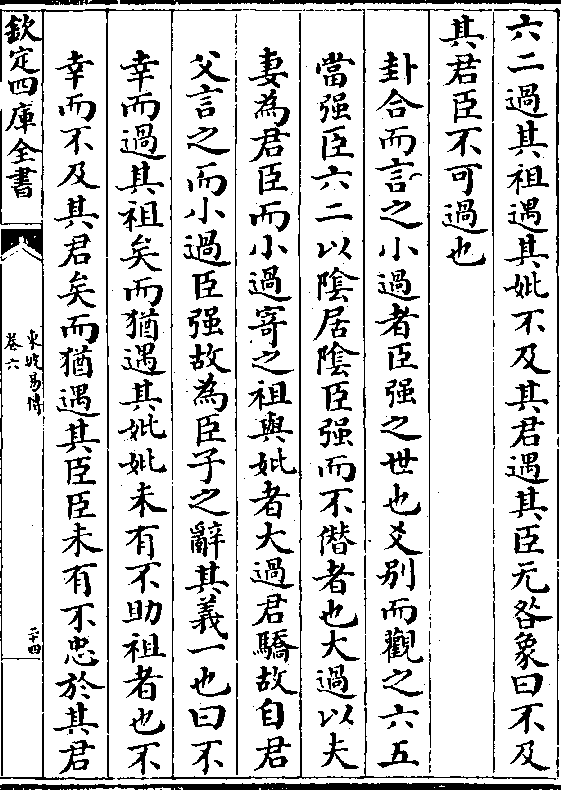 六二過其祖遇其妣不及其君遇其臣无咎象曰不及
其君臣不可過也
卦合而言之小過者臣强之世也爻别而觀之六五
當强臣六二以陰居陰臣强而不僭者也大過以夫
妻為君臣而小過寄之祖與妣者大過君驕故自君
父言之而小過臣强故為臣子之辭其義一也曰不
幸而過其祖矣而猶遇其妣妣未有不助祖者也不
幸而不及其君矣而猶遇其臣臣未有不忠於其君
欽定四庫全書
東坡易傳
卷六
二十四